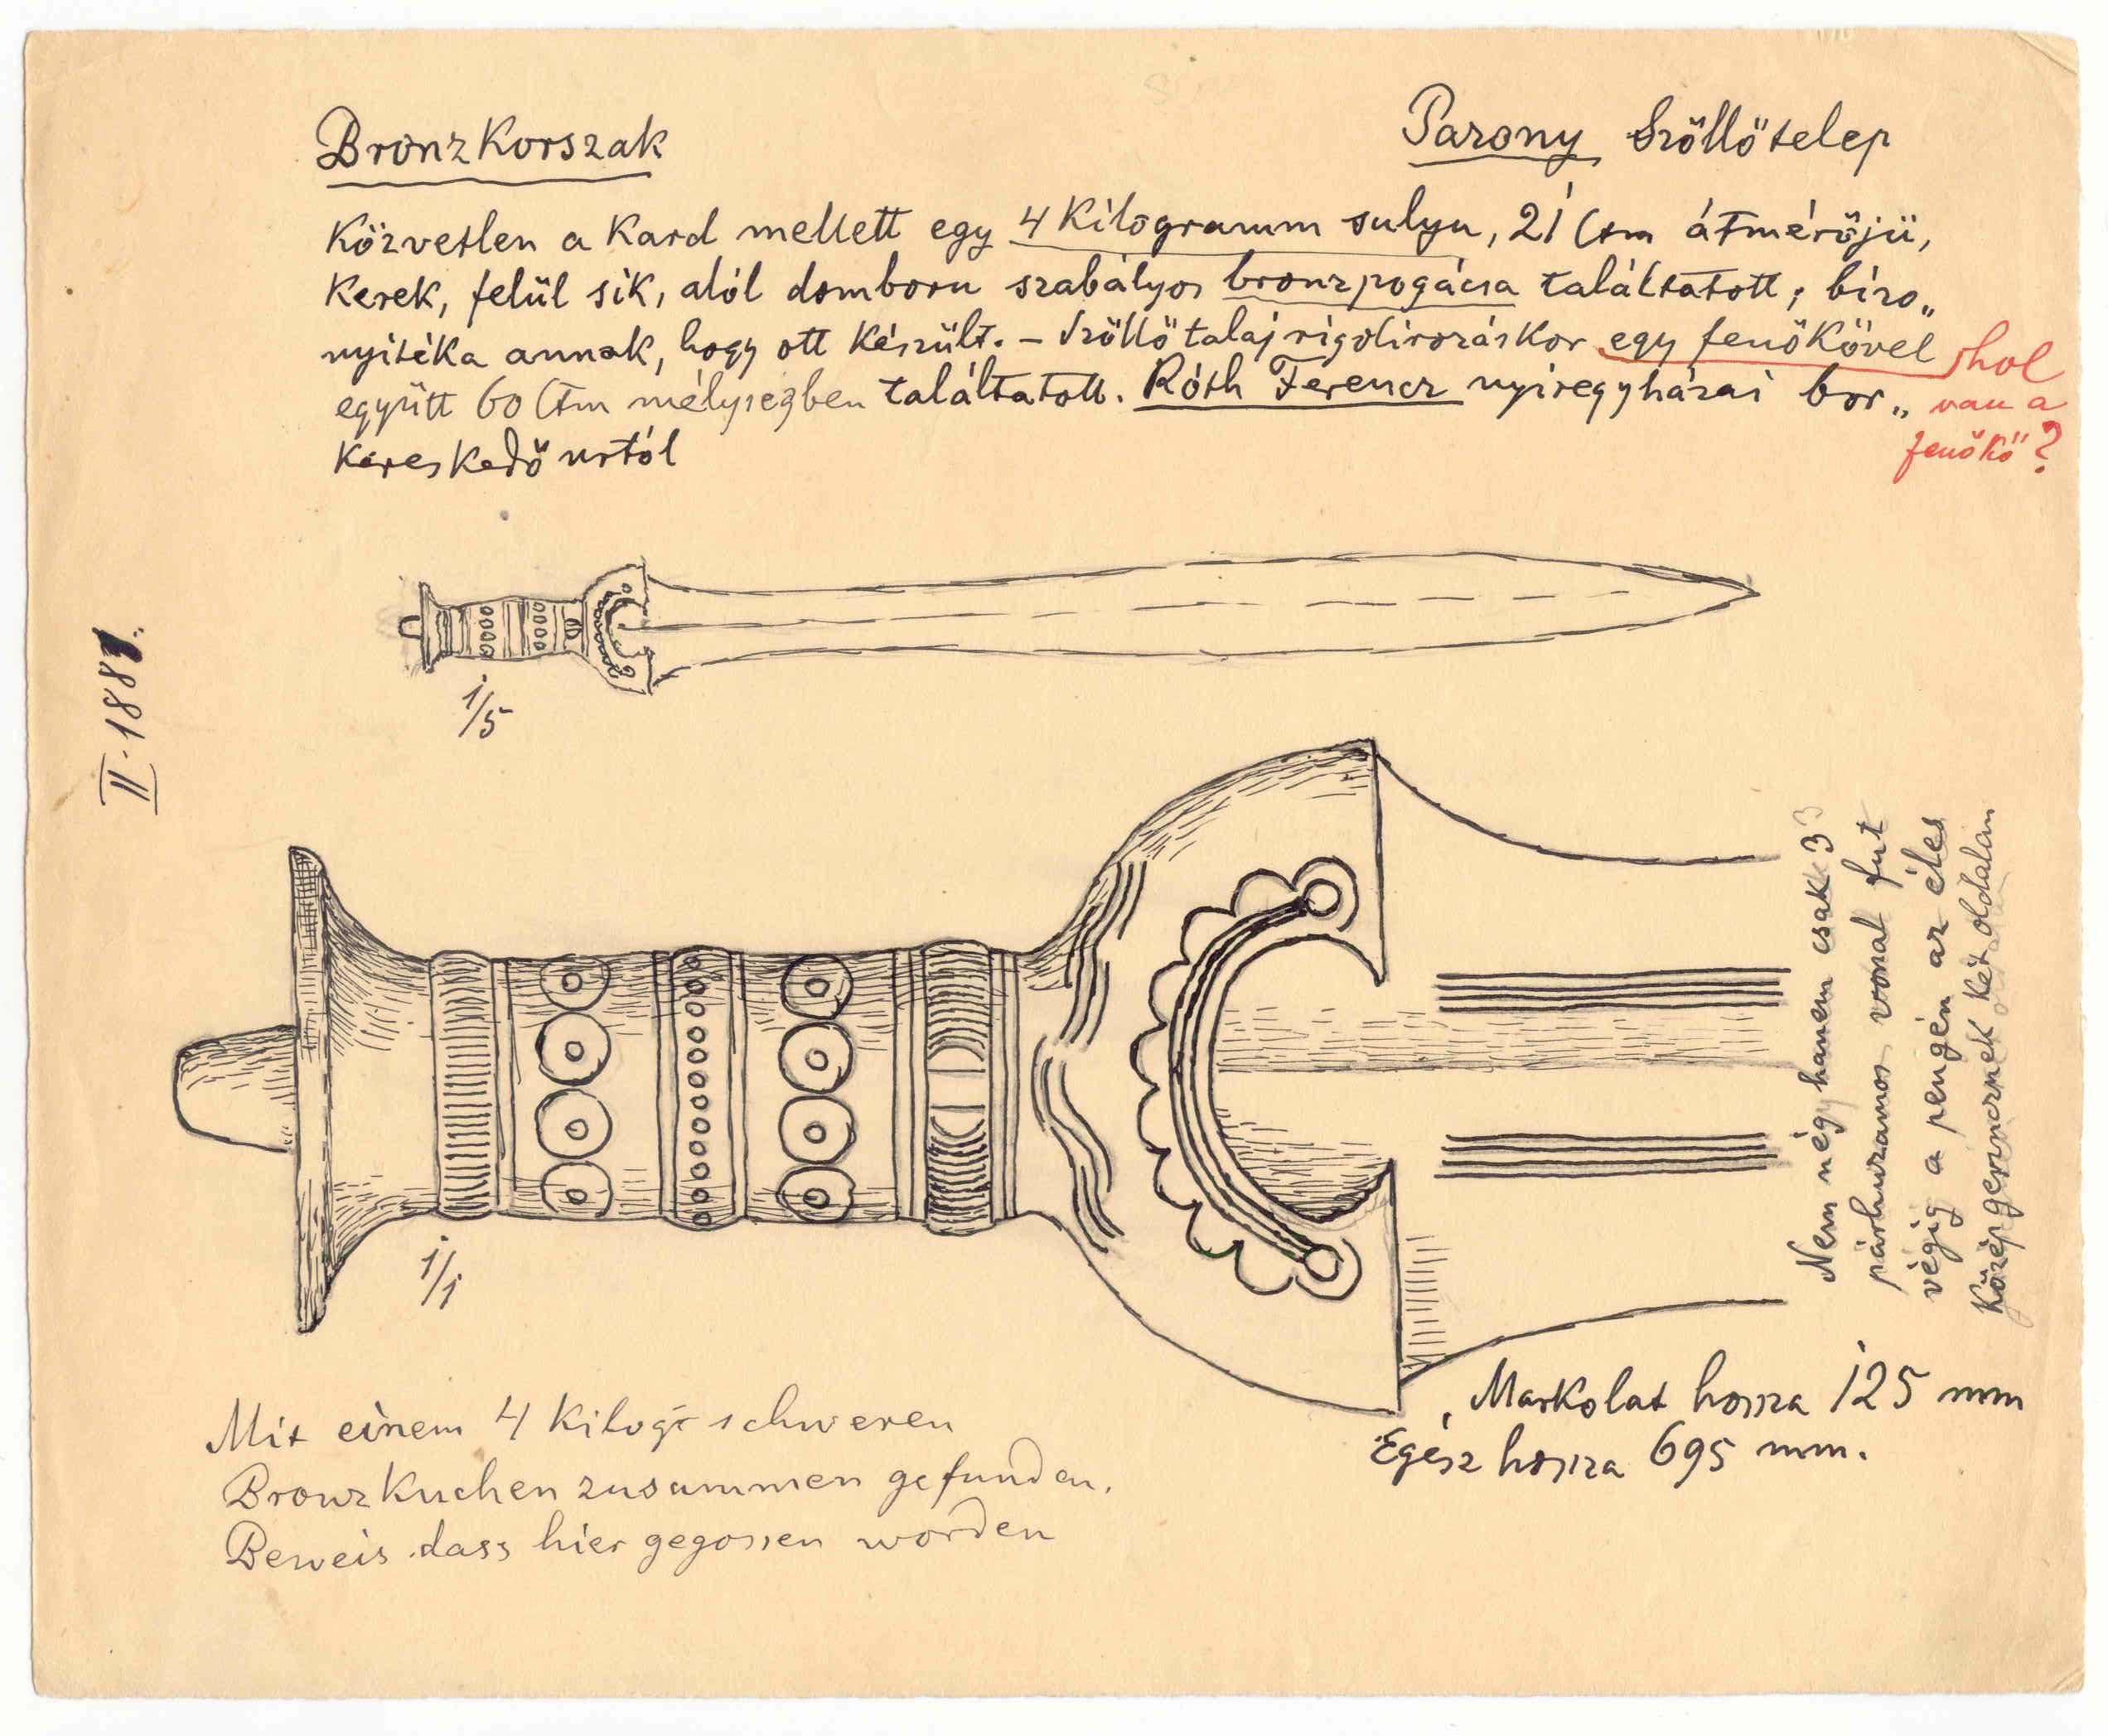 Bronzkorszak
Pazony Szőllőtelep
Közvetlen a kard mellett egy 4 kilogramm sulyu, 21 Ctm átmérőjü,
kerek, felül sik, alól domboru szabályos bronzpogácsa találtatott; bizo„
nyitéka annak, hogy ott készült. – Szőllőtalaj rigolirozáskor egy fenőkővel
együtt 60 Ctm mélységben találtatott. Róth Ferencz nyiregyházai bor„
kereskedő urtól
hol
van a
fenőkő?
II. 188
1/5
1/1
Nem négy hanem csak 3
párhuzamos vonal fut
végig a pengén az éles
középgerincznek két oldalán
Markolat hossza 125 mm
Egész hossza 695 mm.
Mit einem 4 Kilogr schweren
Bronzkuchen zusammen gefunden.
Beweis dass hier gegossen worden